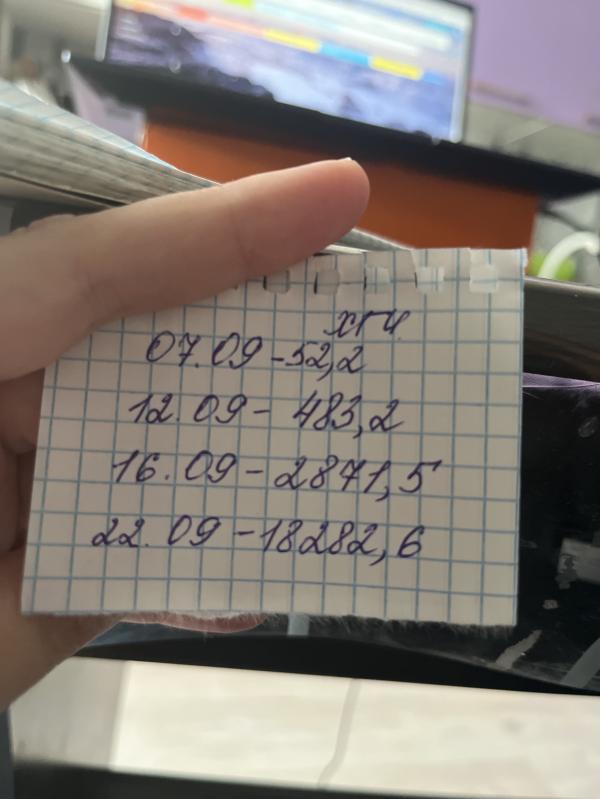 хгч
07.09 - 52,2
12.09 - 483,2
16.09 - 2871,5
22.09 - 18282,6